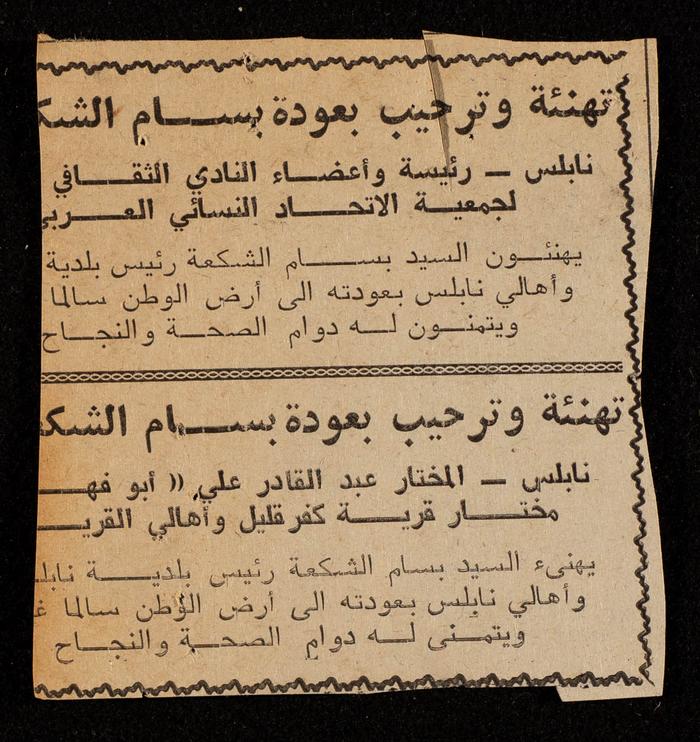 تهنئة وترحيب بعودة بســـام الشك
نابلس ــ رئيسة وأعضـاء النادي الثقـافي
لجمعيـة الاتحـاد النسائي العـربي
يهنئـون السيد بسـام الشكعة رئيس بلدية
وأهالي نابلس بعودته الى أرض الوطن سالما
ويتمنـون لـه دوام الصحـة والنجـاح
تهنئة وترحيب بعودة بســـام الشكع
نابلس ــ المختار عبد القادر علي (( أبو فهـ
مختـار قريـة كفر قليل وأهالي القريـ
يهنىء السيد بسام الشكعة رئيس بلديـة نابلـ
وأهالي نابلس بعودته الى أرض الوطن سالما غ
ويتمـنى لـه دوام الصحـة والنجـاح